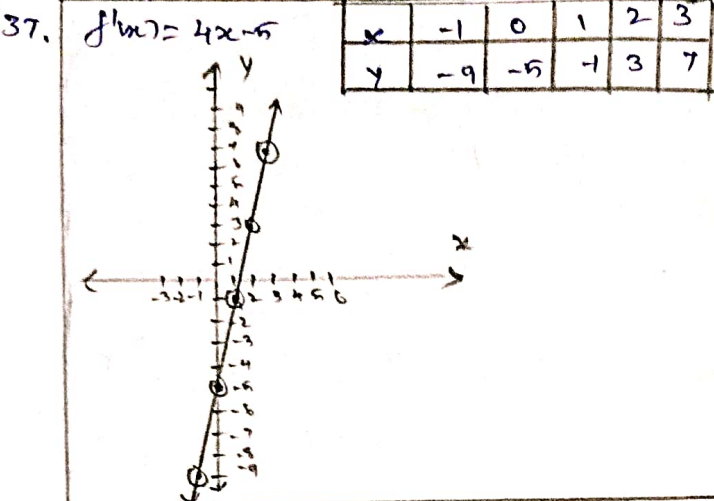 37. f'(x) = 4x-5
x -1 0 1 2 3
y -9 -5 -1 3 7
y
9
8
7
6
5
4
3
2
1
x
-3 -2 -1 2 3 4 5 6
-2
-3
-4
-5
-6
-7
-8
-9